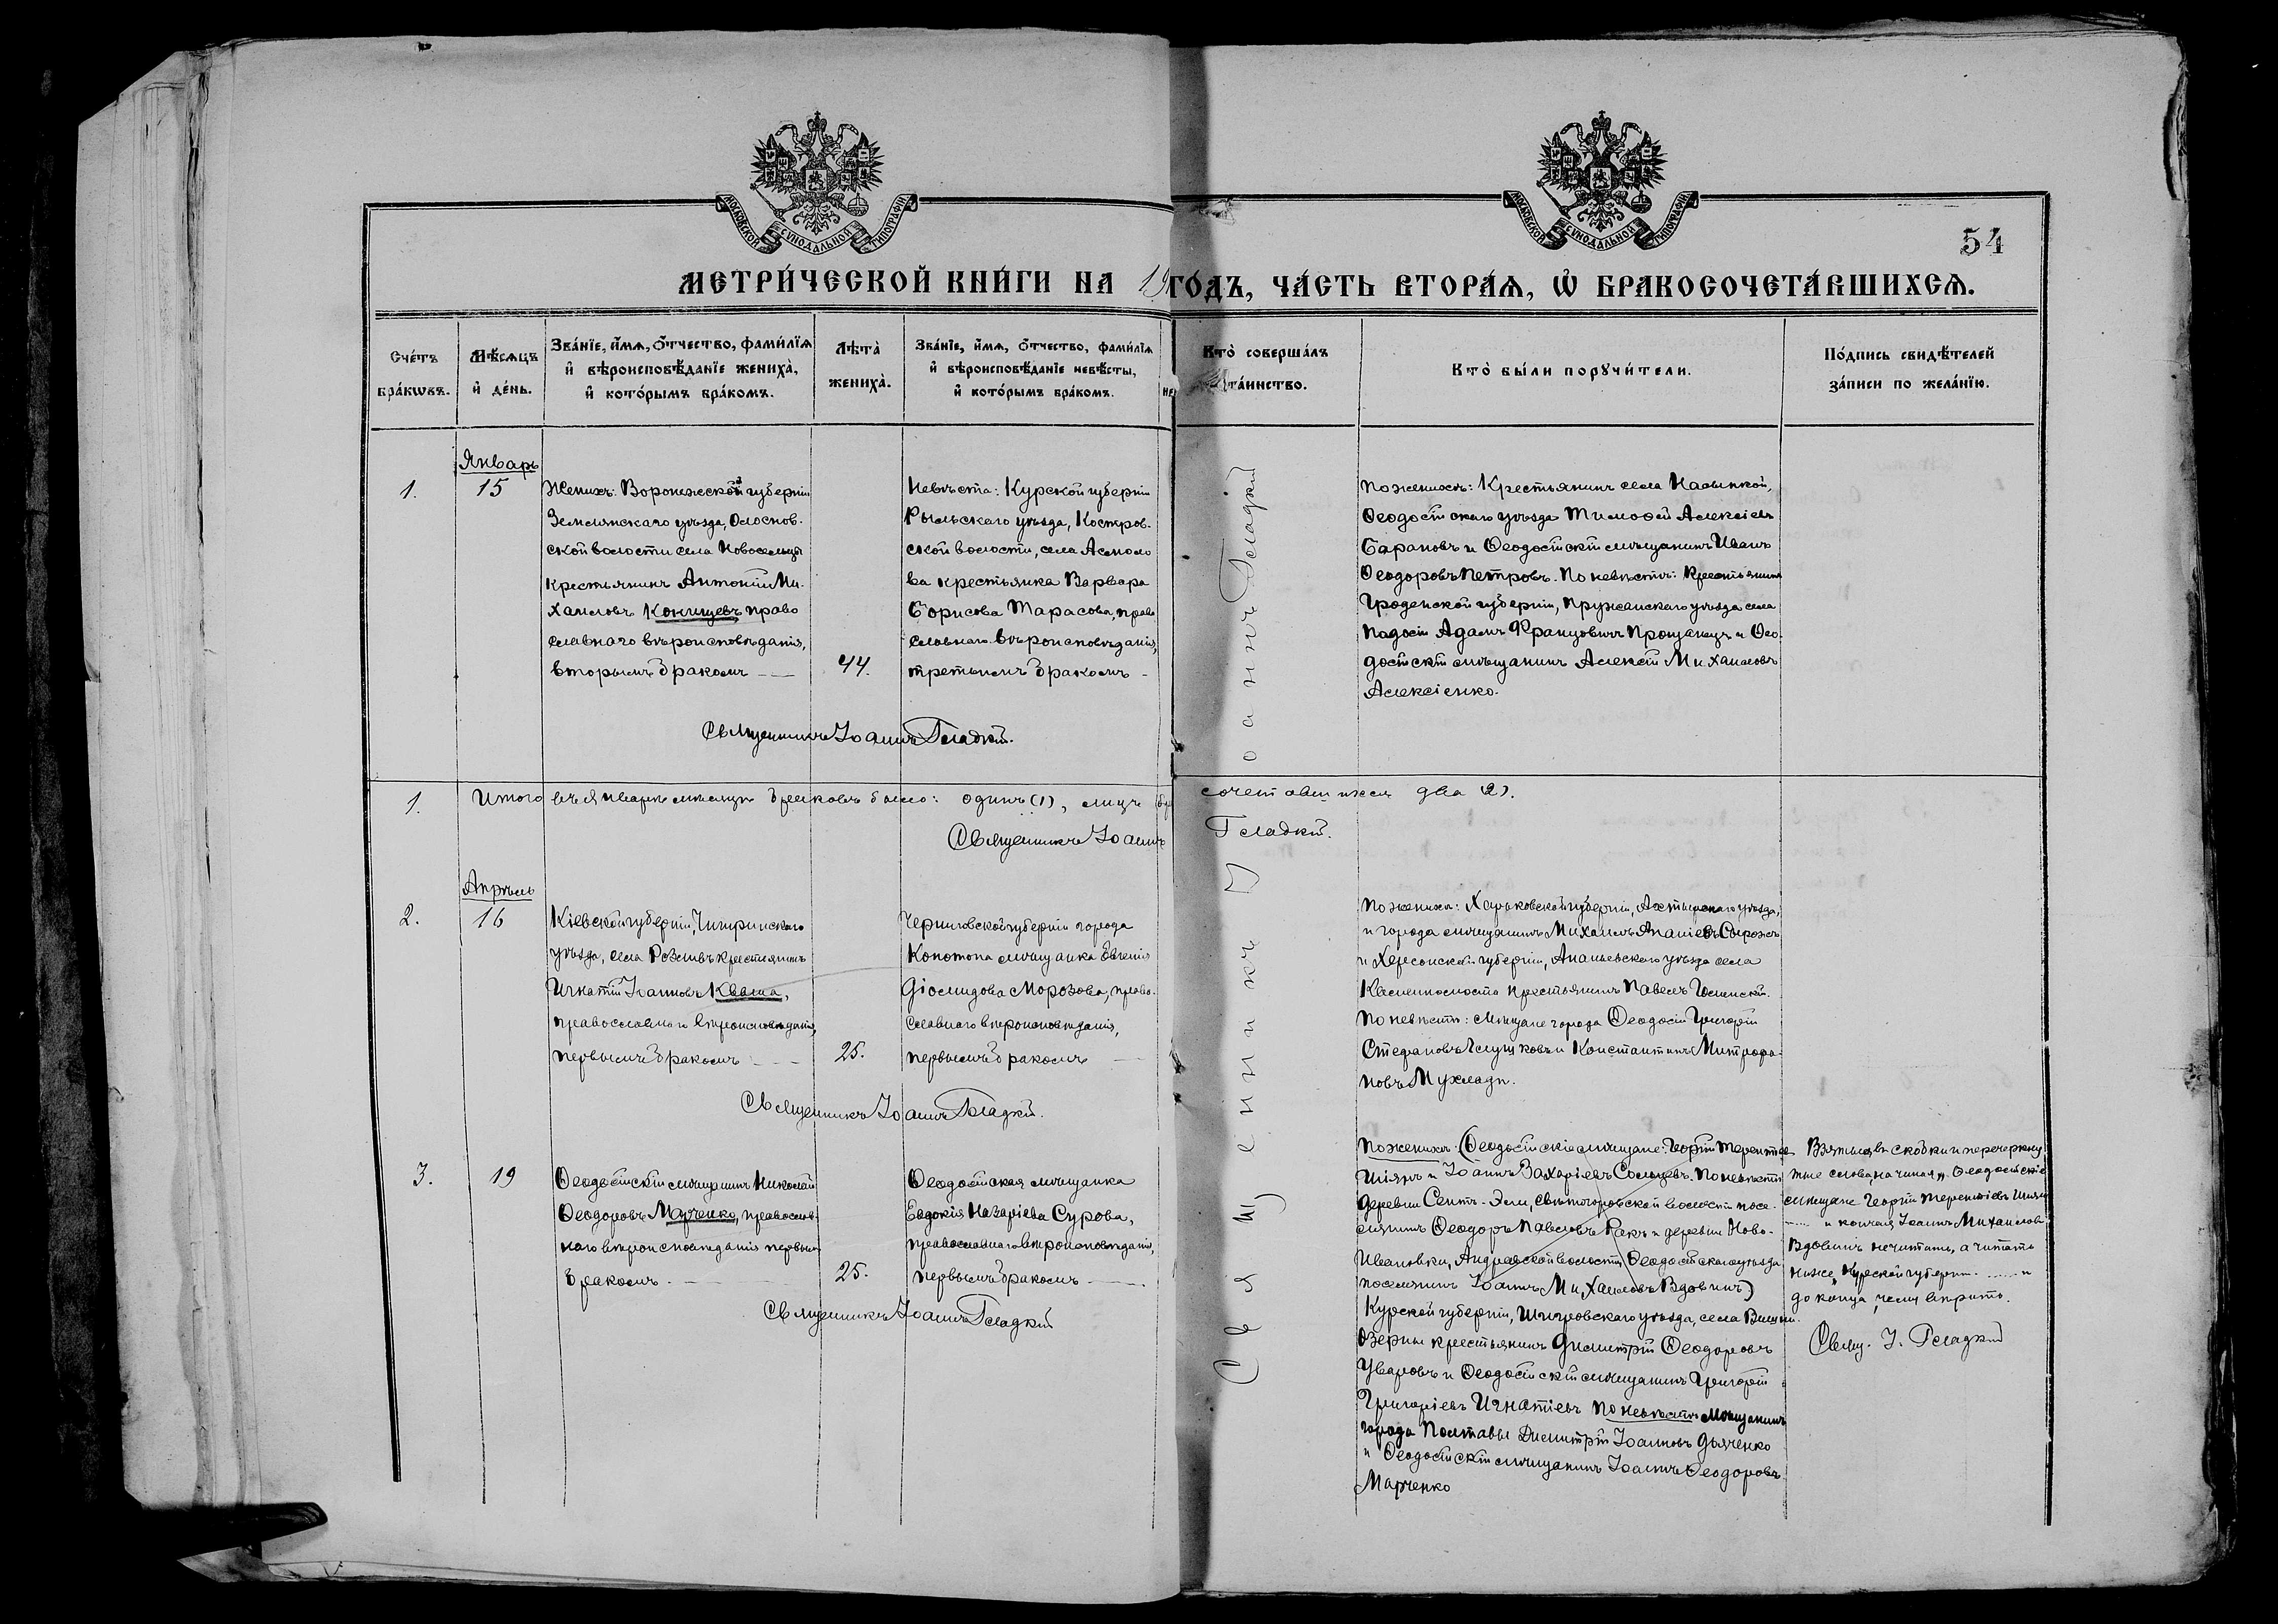 МОСКОВСКОЙ СУНОДАЛЬНОЙ ТИПОГРАФІИ
МОСКОВСКОЙ СУНОДАЛЬНОЙ ТИПОГРАФІИ
54
МЕТРИ́ЧЕСКОЙ КНИ́ГИ НА 19 ГО́ДЪ, ЧА́СТЬ ВТОРА́Ѧ, Ѡ҆ БРАКОСОЧЕТА́ВШИХСѦ.
Сче́тъ бра́кѡвъ.
Мѣ́сѧцъ и҆ де́нь.
Зва́нїе, и҆́мѧ, ѻ҆́тчество, фами́лїѧ и҆ вѣроисповѣ́данїе жениха̀, и҆ кото́рымъ бра́комъ.
Лѣта̀ жениха̀.
Зва́нїе, и҆́мѧ, ѻ҆́тчество, фами́лїѧ и҆ вѣроисповѣ́данїе невѣ́сты, и҆ кото́рымъ бра́комъ.
не
Кто̀ соверша́лъ та́инство.
Кто̀ бы́ли порꙋчи́тели.
По́дпись свидѣ́телей за́писи по жела́нїю.
Январь
1.
15
Женихъ: Воронежской губерніи
Землянскаго уѣзда,
ской волости села Новосельцы
крестьянинъ Антоній Ми-
хаиловъ Конищевъ право
славнаго вѣроисповѣданія,
вторымъ бракомъ
44.
Невѣста: Курской губерніи
Рыльскаго уѣзда, Костров-
ской волости, села Асмоло
ва крестьянка Варвара
Борисова Тарасова, право
славнаго вѣроисповѣданія,
третьимъ бракомъ
По женихѣ: Крестьянинъ села
Ѳеодосійскаго уѣзда Тимоѳей Алексіевъ
Барановъ и Ѳеодосійскій мѣщанинъ Иванъ
Ѳеодоровъ Петровъ. По невѣстѣ: Крестьянинъ
Гроденской губерніи, Пружанскаго уѣзда села
Адамъ Францовичъ и Ѳео-
досійскій мѣщанинъ Алексій Михаиловъ
Алексіенко.
Священникъ Іоаннъ Гладкій.
Священникъ Іоаннъ Гладкій
1.
Итого въ Январѣ мѣсяцѣ браковъ было: одинъ (1), лицъ бра
сочетавшихся два (2).
Священникъ Іоаннъ Гладкій.
Апрѣль
2.
16
Кіевской губерніи, Чигринскаго
уѣзда, села крестьянинъ
Игнатій Іоанновъ Кваша,
православнаго вѣроисповѣданія,
первымъ бракомъ
25.
Черниговской губерніи города
Конотопа мѣщанка Евгенія
Діомидова Морозова, право-
славнаго вѣроисповѣданія,
первымъ бракомъ
По женихѣ: Харьковской губерніи, Ахтырскаго уѣзда,
и города мѣщанинъ Михаилъ Ананіевъ
и Херсонской губерніи, Ананьевскаго уѣзда села
крестьянинъ Павелъ
По невѣстѣ: Мѣщане города Ѳеодосіи Григорій
Стефановъ и Константинъ Митрофа-
новъ
Священникъ Іоаннъ Гладкій.
3.
19
Ѳеодосійскій мѣщанинъ Николай
Ѳеодоровъ Марченко, православ-
наго вѣроисповѣданія первымъ
бракомъ
25.
Ѳеодосійская мѣщанка
Евдокія Назаріева Сурова,
православнаго вѣроисповѣданія,
первымъ бракомъ
Священникъ Іоаннъ Гладкій
По женихѣ: (Ѳеодосійскіе мѣщане: Георгій Терентіев
Шіянъ и Іоаннъ Захаріевъ По невѣстѣ
деревни волости посе-
лянинъ Ѳеодоръ Павловъ и деревни Ново-
Ивановки, Андреевской волости, Ѳеодосійскаго уѣзда
поселянинъ Іоаннъ Михаиловъ Вдовинъ)
Курской губерніи, Щигровскаго уѣзда, села
Озерны крестьянинъ Димитрій Ѳеодоровъ
Уваровъ и Ѳеодосійскій мѣщанинъ Григорій
Григоріевъ Игнатіевъ По невѣстѣ мѣщанинъ
города Полтавы Димитрій Іоанновъ Дьяченко
и Ѳеодосійскій мѣщанинъ Іоаннъ Ѳеодоровъ
Марченко
Взятыя въ скобки и перечеркну
тые слова, начиная „Ѳеодосійскіе
мѣщане Георгій Терентіевъ Шіянъ
и кончая Іоаннъ Михаиловъ
Вдовинъ не читать, а читать
ниже „Курской губерніи и
до конца, чему вѣрить.
Свящ. І. Гладкій